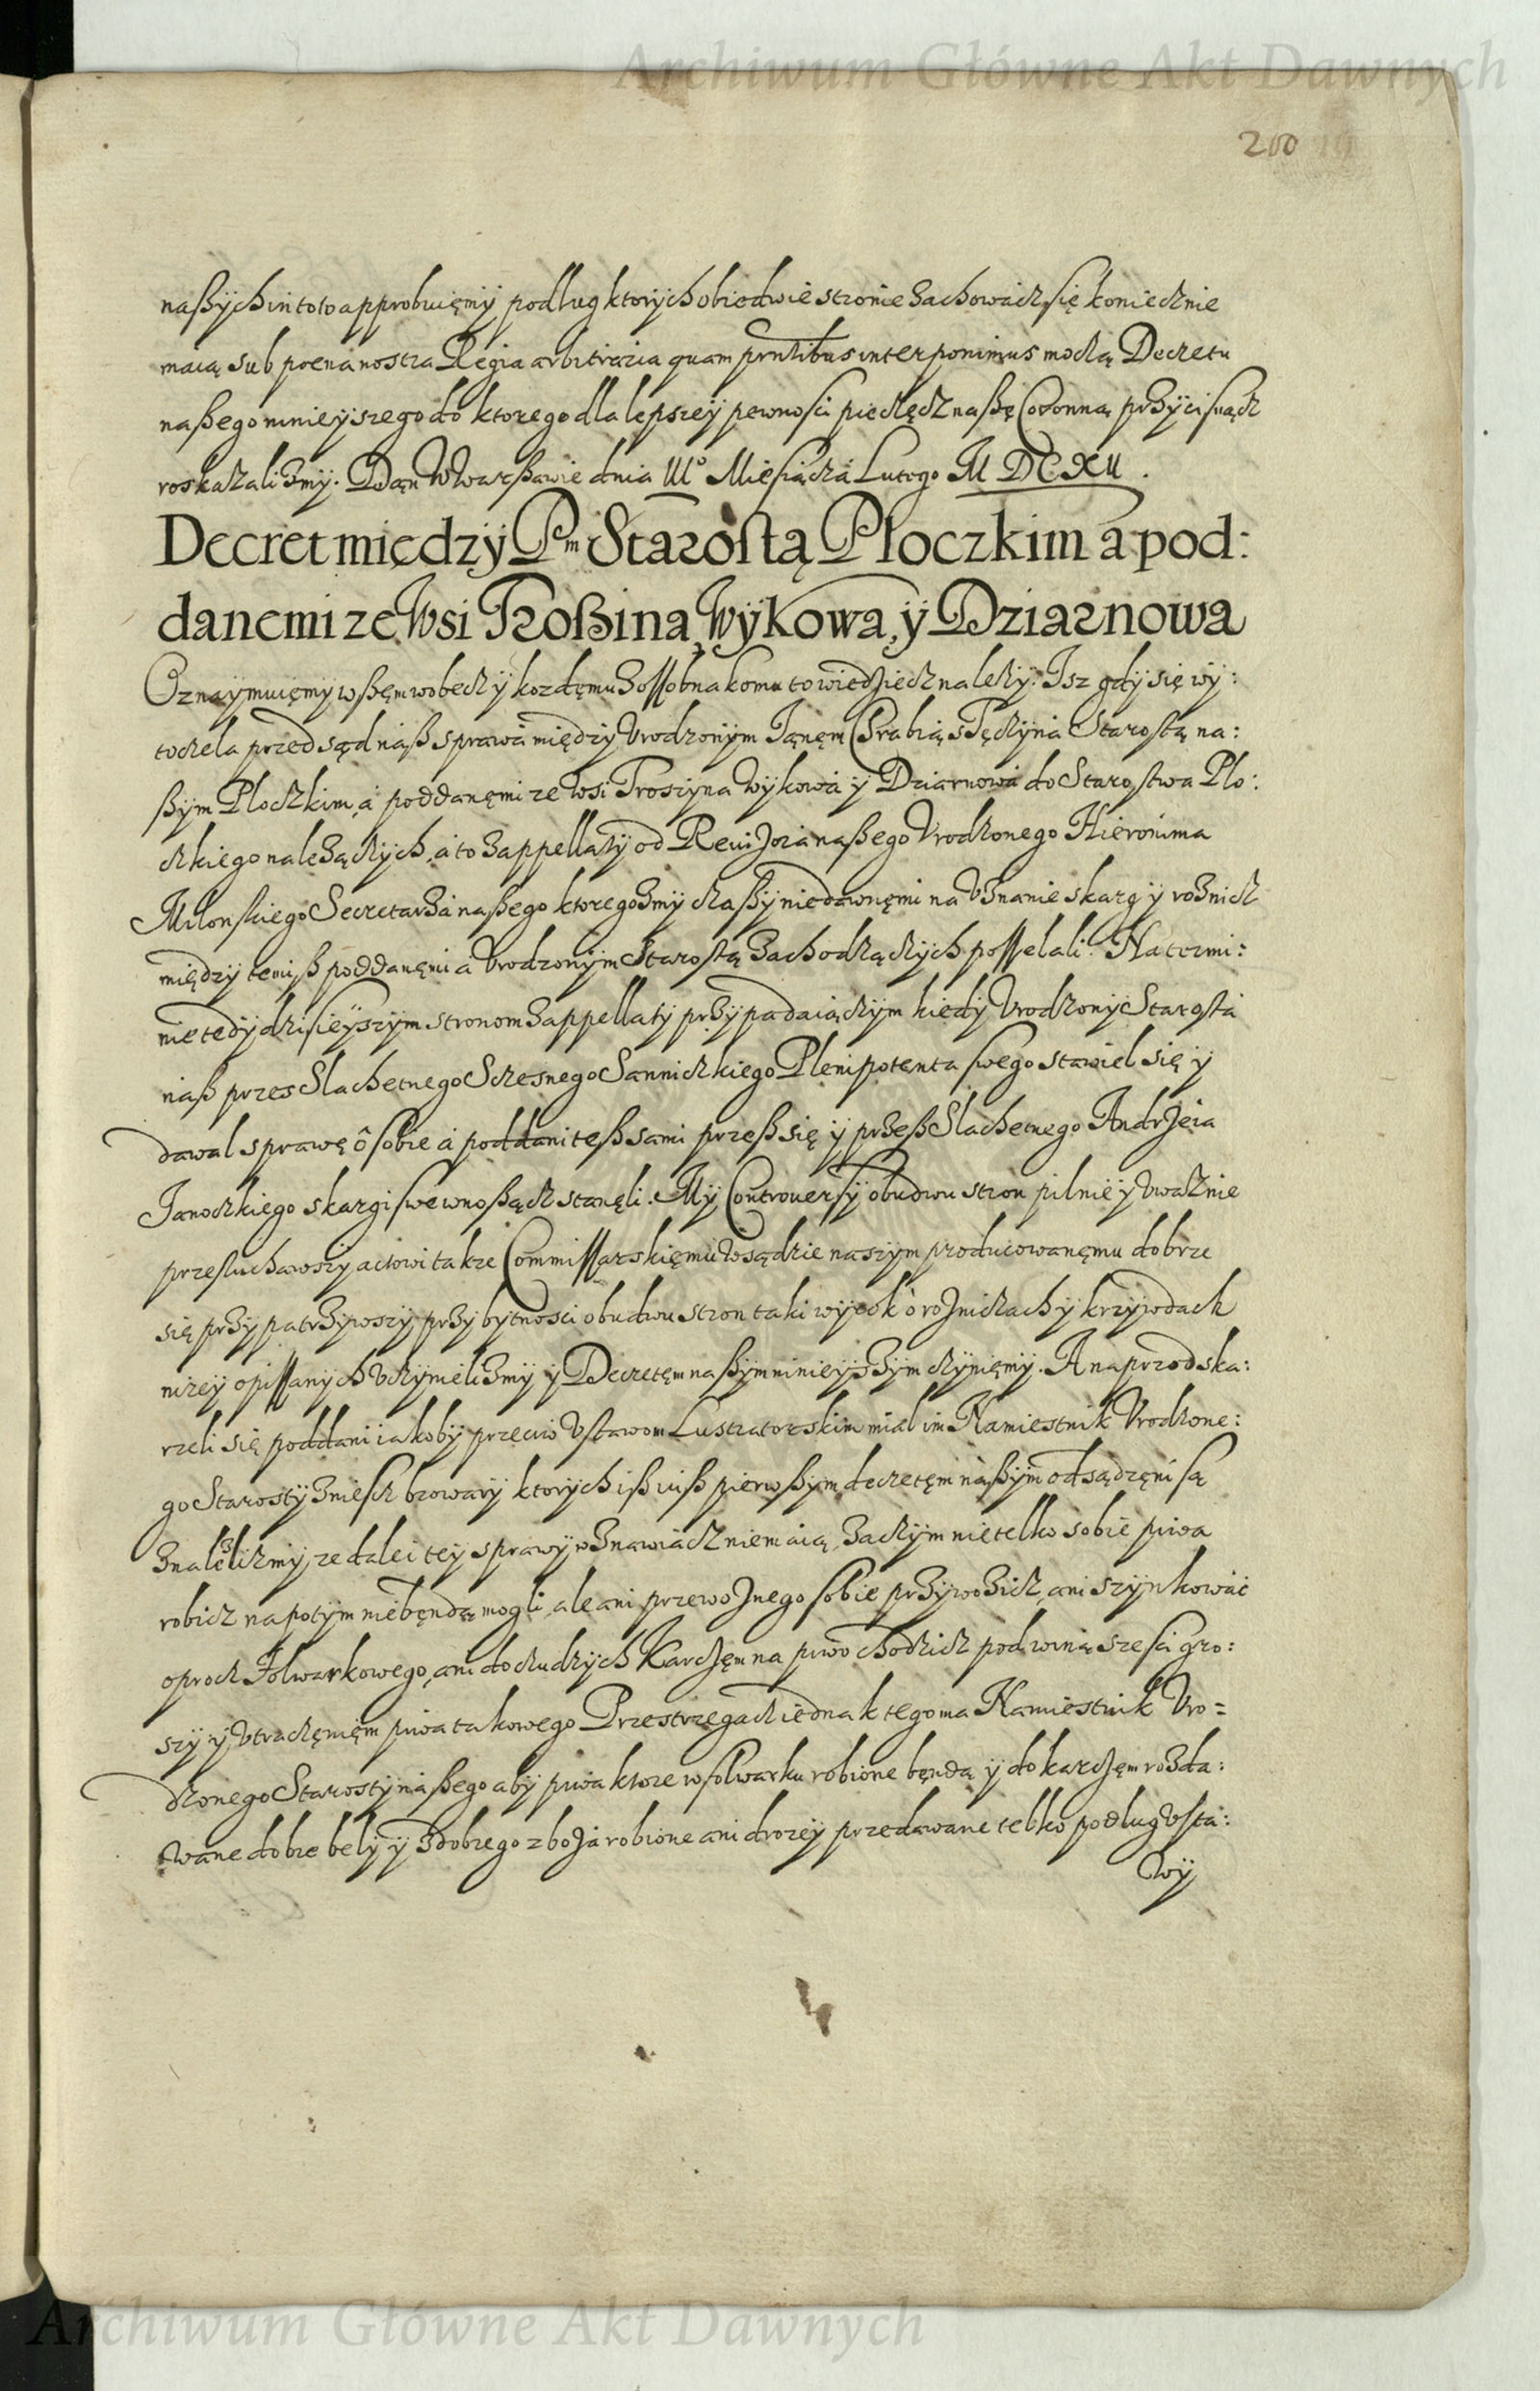 Archiwum Główne Akt Dawnych
200
naßÿch in toto approbuięmÿ podług ktorÿch obiedwie stronie zachowacz się koniecznie
maią sub poena nostra Regia arbitraria quam prntibus interponimus moczą Decretu
naßego ninieÿszego do ktorego dla lepszeÿ pewnosci pieczęcz naßę Coronną przÿcisnącz
roskazalizmÿ. Dan w Warßawie dnia III° Miesiącza Lutego M DC XII.
Decret międzÿ Pm Starostą Płoczkim a pod:
danemi ze Wsi Troßina, Wÿkowa, ÿ Dziarnowa
Oznaÿmuięmÿ wßęm wobecz ÿ kozdęmu zossobna komu to wiedziecz nalezÿ. Isz gdÿ się wÿ:
toczela przed sąd naß sprawa międzÿ Urodzonÿm Ianęm Hrabią s Tęczÿna Starostą na:
ßÿm Ploczkim, a poddanęmi ze wsi Troszÿna Wÿkowa ÿ Dziarnowa do Starostwa Plo:
czkiego nalezączÿch, a to z appellatÿ od Revisora naßego Urodzonego Hieronima
Milonskiego Secretarza naßego ktoregozmÿ czaßÿ niedawnęmi na uznanie skarg ÿ roznicz
międzÿ temiß poddanęmi a Urodzonÿm Starostą zachodzączÿch posselali. Na termi:
nie tedÿ dzisieÿszÿm stronom z appellatÿ przÿpadaiączÿm kiedÿ Urodzonÿ Starosta
naß przes Slachetnego Sczesnego Sannickiego Plenipotenta swego stawiel się ÿ
dawal sprawę o sobie a poddani teß sami przeß się ÿ przeß Slachetnego Andrzeia
Janockiego skargi swe wnoßącz stanęli. Mÿ Controversÿ obudwu stron pilnie ÿ uwaznie
przesluchawszÿ actowi takze Commissarskięmu w sądzie naszÿm producowanęmu dobrze
się przÿpatrzÿwszÿ przÿ bÿtnosci obudwu stron taki wÿrok o roznicach ÿ krzÿwdach
nizeÿ opissanÿch uczÿnielizmÿ ÿ Decretęm naßÿm ninieÿszÿm czÿnięmÿ. A naprzod ska:
rzeli się poddani iakobÿ przeciw ustawom Lustratorskim mial im Namiestnik Urodzone:
go Starostÿ zniesc browarÿ ktorÿch iß iuß pierwßÿm decretęm naßÿm odsądzęni są
znalezlizmÿ ze dalei teÿ sprawÿ wznawiacz nie maią, zaczÿm nie telko sobie piwa
robicz napotÿm nie bęndą mogli, ale ani przewoznego sobie przÿwozicz, ani szÿnkować
oprocz Folwarkowego, ani do cudzÿch Karczęm na piwo chodzicz pod winą szesci gro:
szÿ ÿ utraczęnięm piwa takowego Przestrzegacz iednak tego ma Namiestnik Uro=
dzonego Starostÿ naßego abÿ piwa ktore w folwarku robione bęndą ÿ do karczęm rozda:
wane dobre belÿ ÿ z dobrego zboza robione ani drozeÿ przedawane telko podlug usta:
wÿ
Archiwum Główne Akt Dawnych